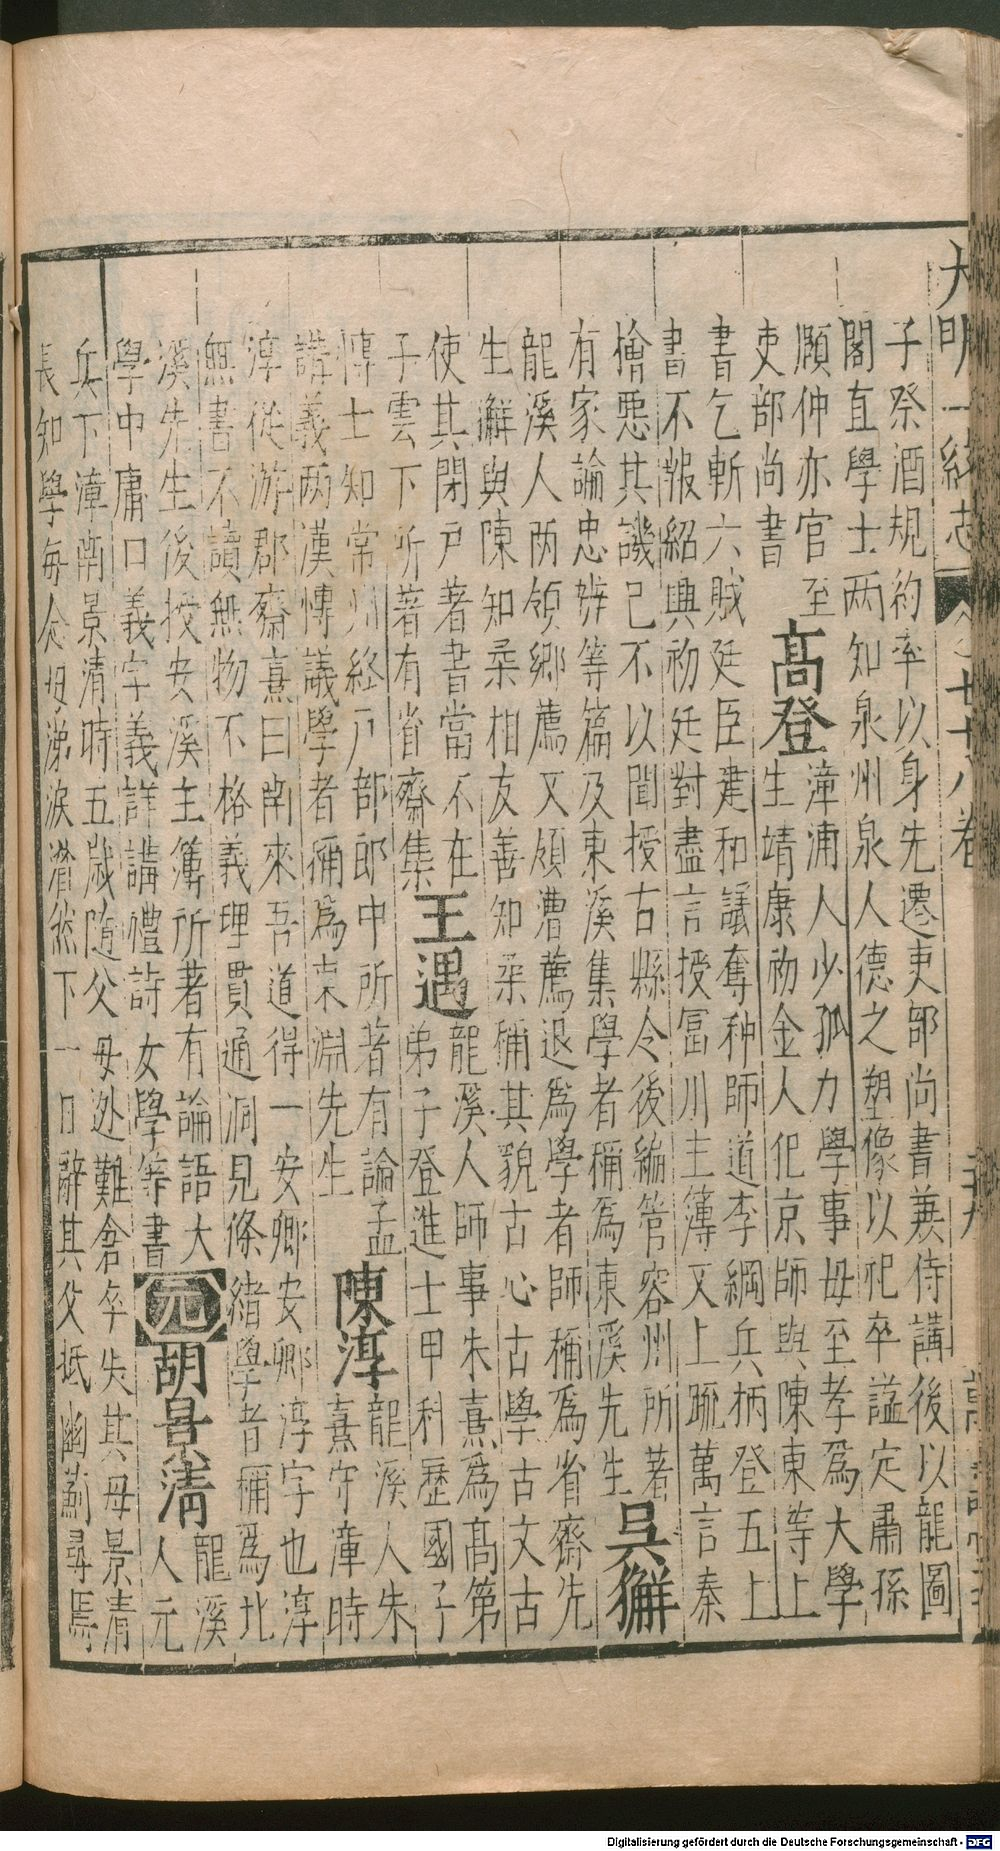 大明一統志 卷之七十八卷
子祭酒規約率以身先遷吏部尚書兼侍講後以龍圖
閣直學士两知泉州泉人德之塑像以祀卒謚定肅孫
願仲亦官至
吏部尚書
高登
漳浦人少孤力學事母至孝爲大學
生靖康初金人犯京師與陳東等上
書乞斬六賊廷臣建和議奪种師道李綱兵柄登五上
書不報紹興初廷對盡言授冨川主簿又上疏萬言秦
檜惡其譏己不以聞授古縣令後編管容州所著
有家論忠辨等篇及東溪集學者稱爲東溪先生
吳獬
龍溪人两領鄉薦又頻漕薦退爲學者師稱爲省齋先
生獬與陳知柔相友善知柔稱其貌古心古學古文古
使其閉户著書當不在
子雲下所著有省齋集
王遇
龍溪人師事朱熹爲髙第
弟子登進士甲科歷國子
博士知常州終户部郎中所著有論孟
講義两漢博議學者稱爲東淵先生
陳淳
龍溪人朱
熹守漳時
淳從游郡齋熹曰南來吾道得一安卿安卿淳字也淳
無書不讀無物不格義理貫通洞見條緒學者稱爲北
溪先生後授安溪主簿所著有論語大
學中庸口義字義詳講禮詩女學等書
元
胡景清
龍溪
人元
兵下漳南景清時五歲随父母迯難倉卒失其母景清
長知學每念母涕淚潸然下一日辭其父抵幽薊尋焉
Digitalisierung gefördert durch die Deutsche Forschungsgemeinschaft - DFG